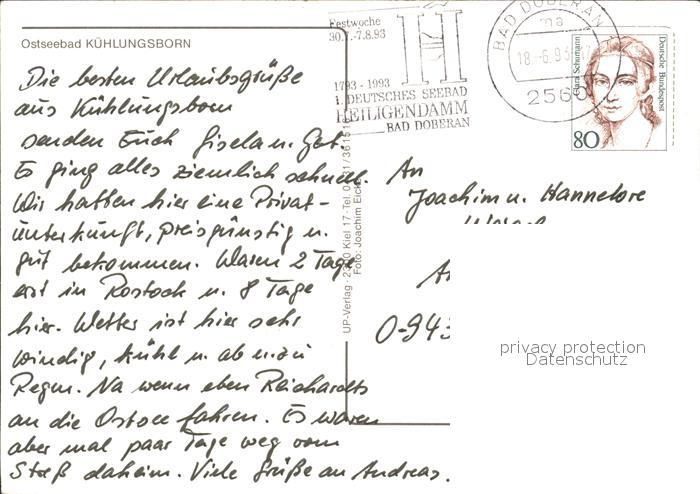 Ostseebad KÜHLUNGSBORN
Die besten Urlaubsgrüße
aus Kühlungsborn
senden Euch Gisela u. Got
Es ging alles ziemlich schnell.
Wir hatten hier eine Privat-
unterkunft, preisgünstig u.
gut bekommen. Waren 2 Tage
erst in Rostock u. 8 Tage
hier. Wetter ist hier sehr
windig, kühl u. ab u. zu
Regen. Na wenn eben Reichardts
an die Ostsee fahren. Es waren
aber mal paar Tage weg vom
Streß daheim. Viele Grüße an Andreas.
UP-Verlag · 2300 Kiel 17 · Tel. 0431/36151
Foto: Joachim Eicke
Festwoche
30.7.-7.8.93
H
1793 - 1993
1. DEUTSCHES SEEBAD
HEILIGENDAMM
BAD DOBERAN
BAD DOBERAN
ma
18.-6.93
2560
Clara Schumann
Deutsche Bundespost
80
An
Joachim u. Hannelore
O-943
privacy protection
Datenschutz